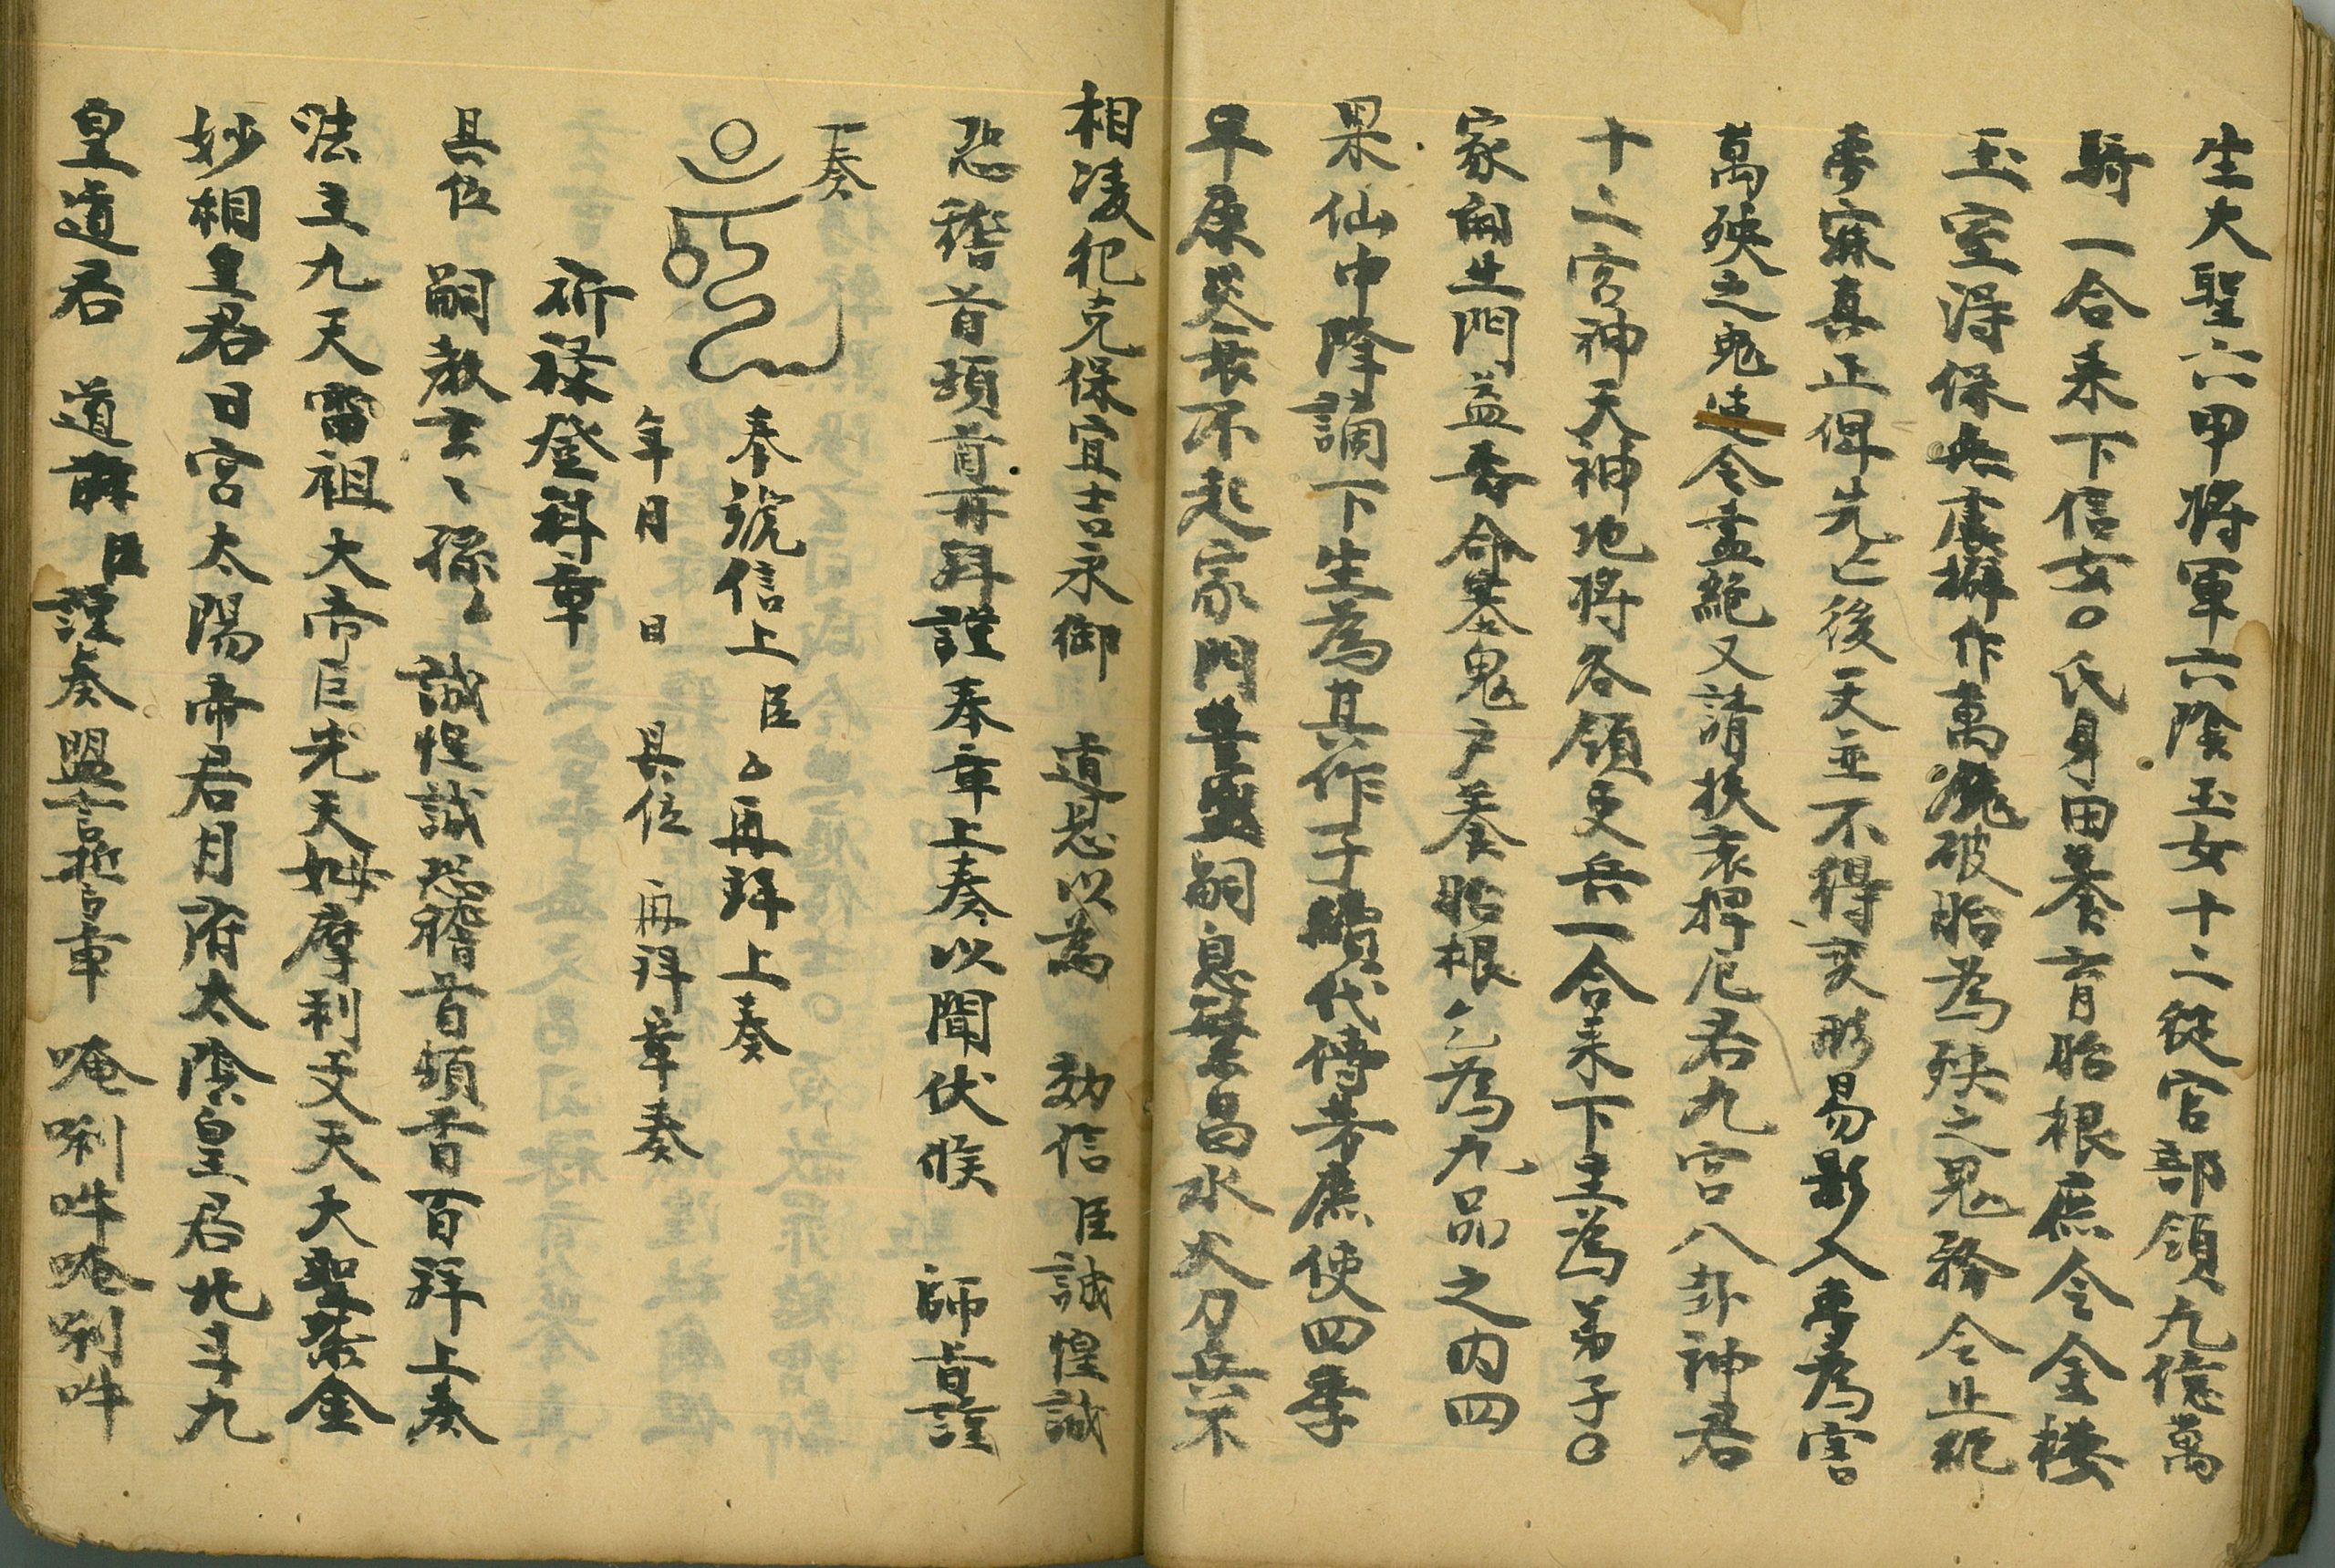 生大聖六甲將軍六陰玉女十二從官部領九億萬
騎一合來下信女○氏身田養育胎根庶令金楼
玉室淂保無虞擁作萬魔破胎為殃之鬼務令止絕
夢寐真正俾先亡後天並不得变形易影入夢為害
萬殃之鬼令盡絕又請扶衰捍厄君九宮八卦神君
十二宮神天神地将各領吏兵一合来下主為弟子○
家向生門益壽命基鬼户养胎根乞為九品之内四
果仙中降謫下生為其作子續代傳孝庶使四季
平康災衰不起家門豊盛嗣息榮昌水火刀兵不
相凌犯克保宜吉永御 道恩以為 効信臣誠惶誠
恐稽首頓首再拜謹奉章上奏以聞伏候 師旨謹
奏
奉號信上臣 再拜上奏
年月 日 具位 再拜章奏
祈禄登科章
具位 嗣教玄 孫 誠惶誠恐稽首頓首百拜上奏
法主九天雷祖大帝臣先天姆摩利支天大聖紫金
妙相皇君日宮太陽帝君月府太陰皇君北斗九
皇道君 道 臣謹奏盟言 章 唵唎吽唵唎吽